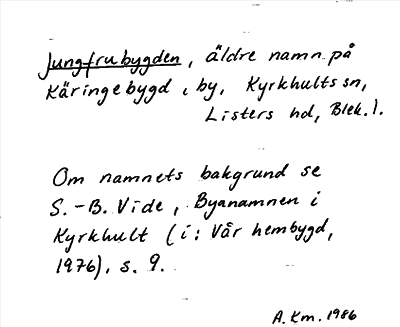 Jungfrubygden, äldre namn på
Käringebygd, by, Kyrkhults sn,
Listers hd, Blek. l.
Om namnets bakgrund se
S.-B. Vide, Byanamnen i
Kyrkhult (i: Vår hembygd,
1976), s. 9.
A. Km. 1986